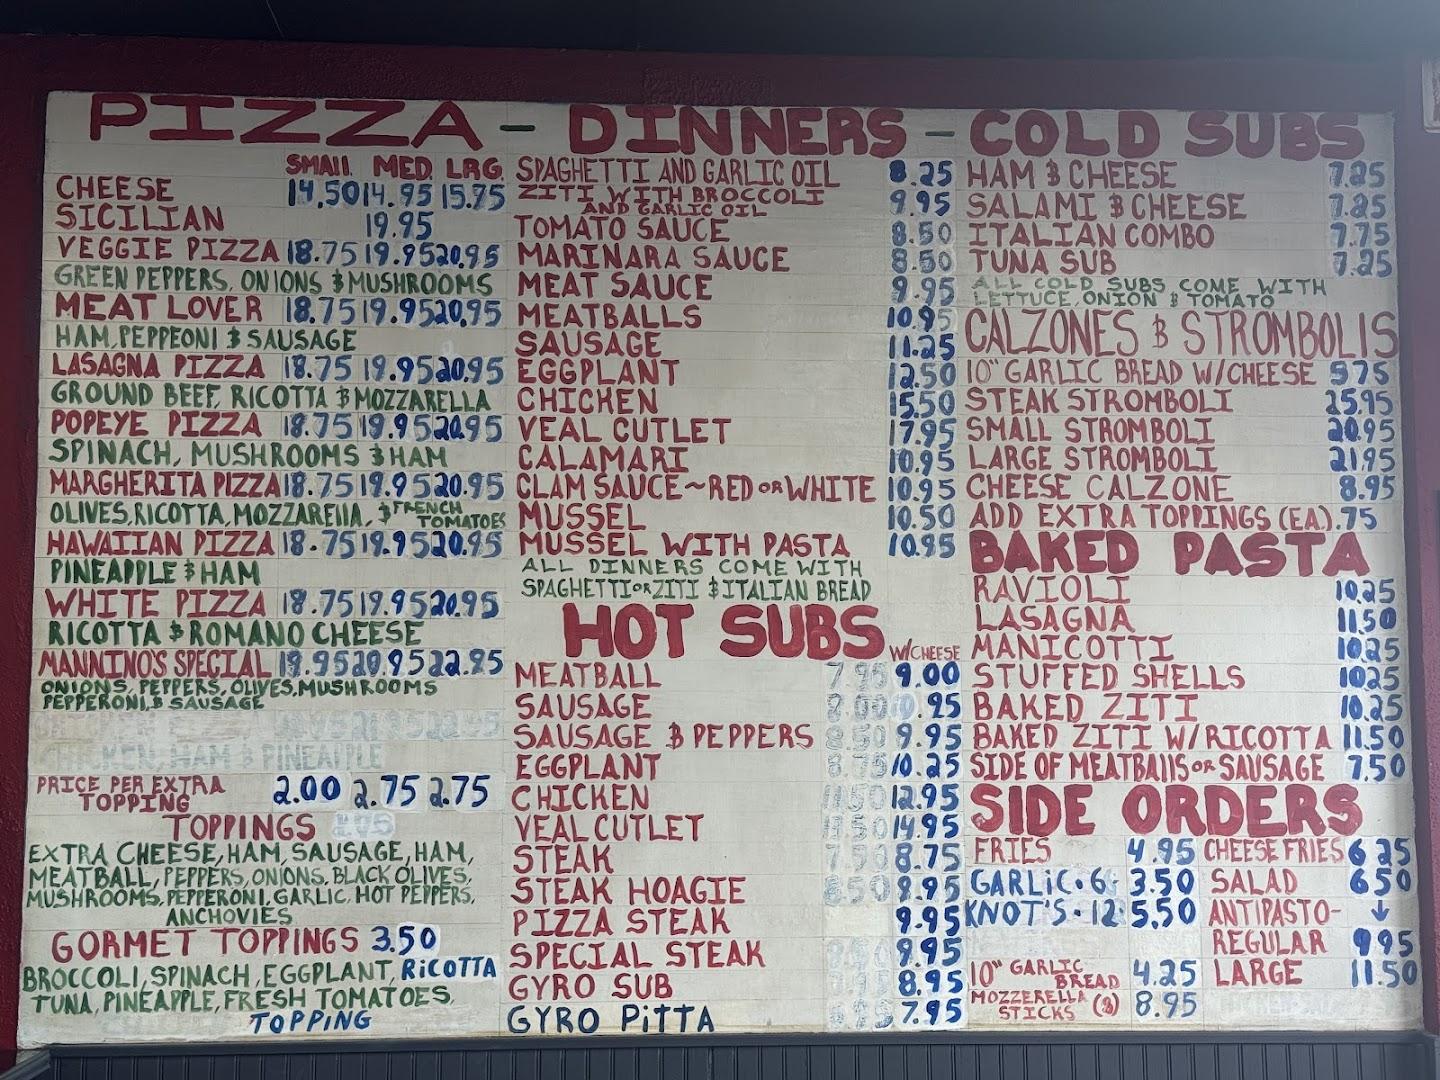 PIZZA - DINNERS - COLD SUBS
SMALL MED. LRG.
CHEESE 14.50 14.95 15.75
SICILIAN 19.95
VEGGIE PIZZA 18.75 19.95 20.95
GREEN PEPPERS, ONIONS & MUSHROOMS
MEAT LOVER 18.75 19.95 20.95
HAM, PEPPEONI & SAUSAGE
LASAGNA PIZZA 18.75 19.95 20.95
GROUND BEEF, RICOTTA & MOZZARELLA
POPEYE PIZZA 18.75 19.95 20.95
SPINACH, MUSHROOMS & HAM
MARGHERITA PIZZA 18.75 19.95 20.95
OLIVES, RICOTTA, MOZZARELLA, & FRENCH TOMATOES
HAWAIIAN PIZZA 18.75 19.95 20.95
PINEAPPLE & HAM
WHITE PIZZA 18.75 19.95 20.95
RICOTTA & ROMANO CHEESE
MANNINO'S SPECIAL 19.95 20.95 22.95
ONIONS, PEPPERS, OLIVES, MUSHROOMS
PEPPERONI, & SAUSAGE
CHICKEN, HAM & PINEAPPLE
PRICE PER EXTRA
TOPPING 2.00 2.75 2.75
TOPPINGS
EXTRA CHEESE, HAM, SAUSAGE, HAM,
MEATBALL, PEPPERS, ONIONS, BLACK OLIVES,
MUSHROOMS, PEPPERONI, GARLIC, HOT PEPPERS,
ANCHOVIES
GORMET TOPPINGS 3.50
BROCCOLI, SPINACH, EGGPLANT, RICOTTA
TUNA, PINEAPPLE, FRESH TOMATOES,
TOPPING
SPAGHETTI AND GARLIC OIL 8.25
ZITI WITH BROCCOLI
AND GARLIC OIL 9.95
TOMATO SAUCE 8.50
MARINARA SAUCE 8.50
MEAT SAUCE 9.95
MEATBALLS 10.95
SAUSAGE 11.25
EGGPLANT 12.50
CHICKEN 15.50
VEAL CUTLET 17.95
CALAMARI 10.95
CLAM SAUCE ~ RED OR WHITE 10.95
MUSSEL 10.50
MUSSEL WITH PASTA 10.95
ALL DINNERS COME WITH
SPAGHETTI OR ZITI & ITALIAN BREAD
HOT SUBS
W/CHEESE
MEATBALL 7.95 9.00
SAUSAGE 8.00 .95
SAUSAGE & PEPPERS 8.50 9.95
EGGPLANT 8.75 10.25
CHICKEN 11.50 12.95
VEAL CUTLET 13.50 14.95
STEAK 7.50 8.75
STEAK HOAGIE 8.50 9.95
PIZZA STEAK 9.95
SPECIAL STEAK 9.95
GYRO SUB 8.95
GYRO PITTA 7.95
HAM & CHEESE 7.25
SALAMI & CHEESE 7.25
ITALIAN COMBO 7.75
TUNA SUB 7.25
ALL COLD SUBS COME WITH
LETTUCE, ONION & TOMATO
CALZONES & STROMBOLIS
10" GARLIC BREAD W/CHEESE 5.75
STEAK STROMBOLI 25.95
SMALL STROMBOLI 20.95
LARGE STROMBOLI 21.95
CHEESE CALZONE 8.95
ADD EXTRA TOPPINGS (EA.) .75
BAKED PASTA
RAVIOLI 10.25
LASAGNA 11.50
MANICOTTI 10.25
STUFFED SHELLS 10.25
BAKED ZITI 10.25
BAKED ZITI W/RICOTTA 11.50
SIDE OF MEATBALLS OR SAUSAGE 7.50
SIDE ORDERS
FRIES 4.95 CHEESE FRIES 6.25
GARLIC • 6 3.50 SALAD 6.50
KNOT'S • 12 5.50 ANTIPASTO- ↓
REGULAR 9.95
10" GARLIC BREAD 4.25 LARGE 11.50
MOZZERELLA STICKS (8) 8.95